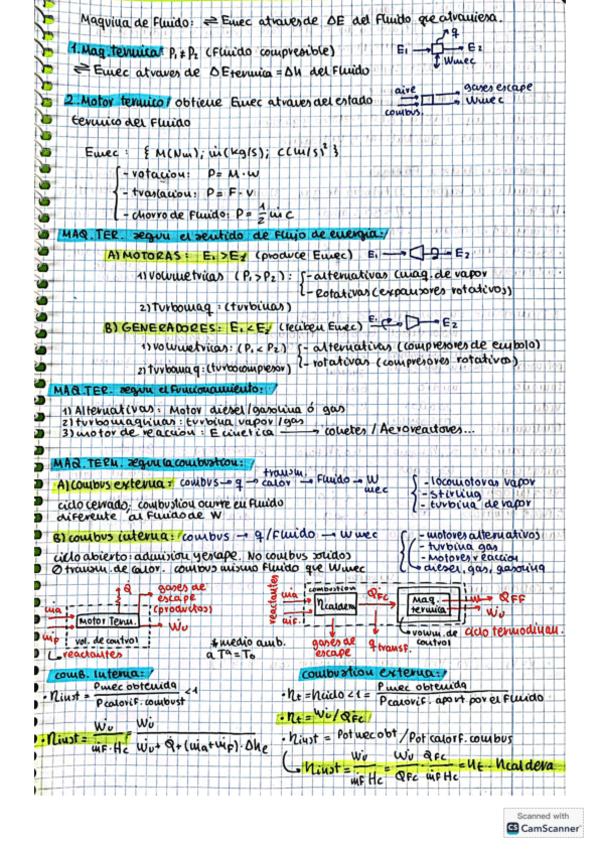 Maquina de Fluido: ⇌ Emec atraves de ΔE del Fluido que atraviesa.
1. Maq. termica: P₁ ≠ P₂ (Fluido compresible)
⇌ Emec atraves de ΔEtermica = Δh del Fluido
E₁ → E₂
q
Wmec
2. Motor termico / obtiene Emec atraves del estado
termico del Fluido
aire
combus.
gases escape
Wmec
Emec: { M(Nm); ṁ(kg/s); C(m/s)² }
- rotacion: P = M · W
- traslacion: P = F · V
- chorro de Fluido: P = 1/2 ṁ C
MAQ. TER. segun el sentido de Flujo de energia:
A) MOTORAS: E₁ > E₂ (produce Emec) E₁ → E₂
1) volumetricas (P₁ > P₂): - alternativas (maq. de vapor
- Rotativas (expansores rotativos)
2) Turbomaq: (turbinas)
B) GENERADORES: E₁ < E₂ (reciben Emec) E₁ → E₂
1) volumetricas: (P₁ < P₂) - alternativas (compresores de embolo)
2) turbomaq: (turbocompresor) - rotativas (compresores rotativos)
MAQ TER. segun el Funcionamiento:
1) Alternativas: Motor diesel/gasolina ó gas
2) turbomaquinas: turbina vapor/gas
3) motor de reaccion: E cinetica → cohetes / Aeroreactores...
MAQ. TERM. segun la combustion:
A) combus externa: combus → q → transm. calor → Fluido → W mec
- locomotoras vapor
- stirling
- turbina de vapor
ciclo cerrado, combustion ocurre en Fluido
diferente al Fluido de W
B) combus interna: combus → q/Fluido → W mec
- motores alternativos
- turbina gas
- motores reaccion
- diesel, gas, gasolina
ciclo abierto: admision y escape. No combus solidos
∅ transm. de calor. combus mismo Fluido que Wmec
Q̇
gases de
escape
(productos)
ṁa
ṁF
Motor Term.
vol. de control
Ẇu
reactantes
* medio amb.
a Tª = T₀
reactantes
ṁa
ṁF
combustion
ηcaldera
Q̇FC
Maq.
termica
Q̇FF
Ẇu
gases de
escape
q transf.
volum. de
control
ciclo termodinam.
comb. Interna:
· ηinst = Pmec obtenida / P calorif. combust < 1
· ηinst = Ẇu / ṁF · Hc = Ẇu / Ẇu + Q̇ + (ṁa + ṁF) · Δhe
Combustion externa:
· ηt = ηciclo < 1 = Pmec obtenida / P calorif. aport por el Fluido
· ηt = Ẇu / Q̇FC
· ηinst = Pot mec obt / Pot calorf. combus
ηinst = Ẇu / ṁF Hc = Ẇu / Q̇FC · Q̇FC / ṁF Hc = ηt · ηcaldera
Scanned with
CS CamScanner